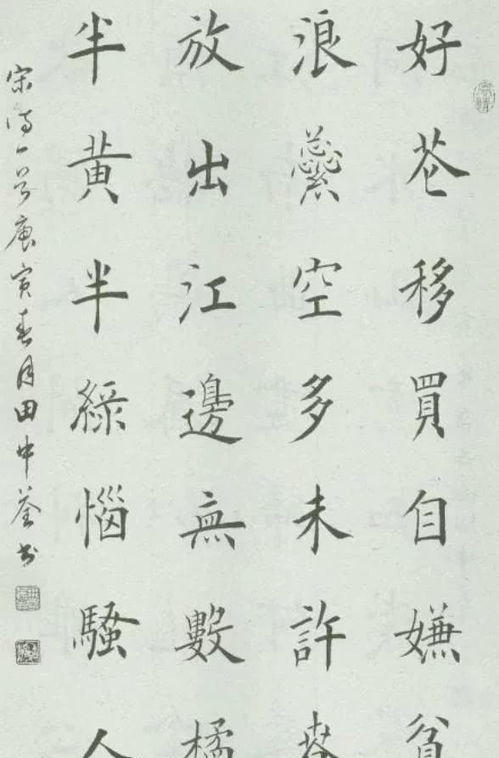 好花移買自嫌貧
浪蘂空多未許春
放出江邊無數橘
半黃半綠惱騷人
宋詩一首庚寅春月田中荃書